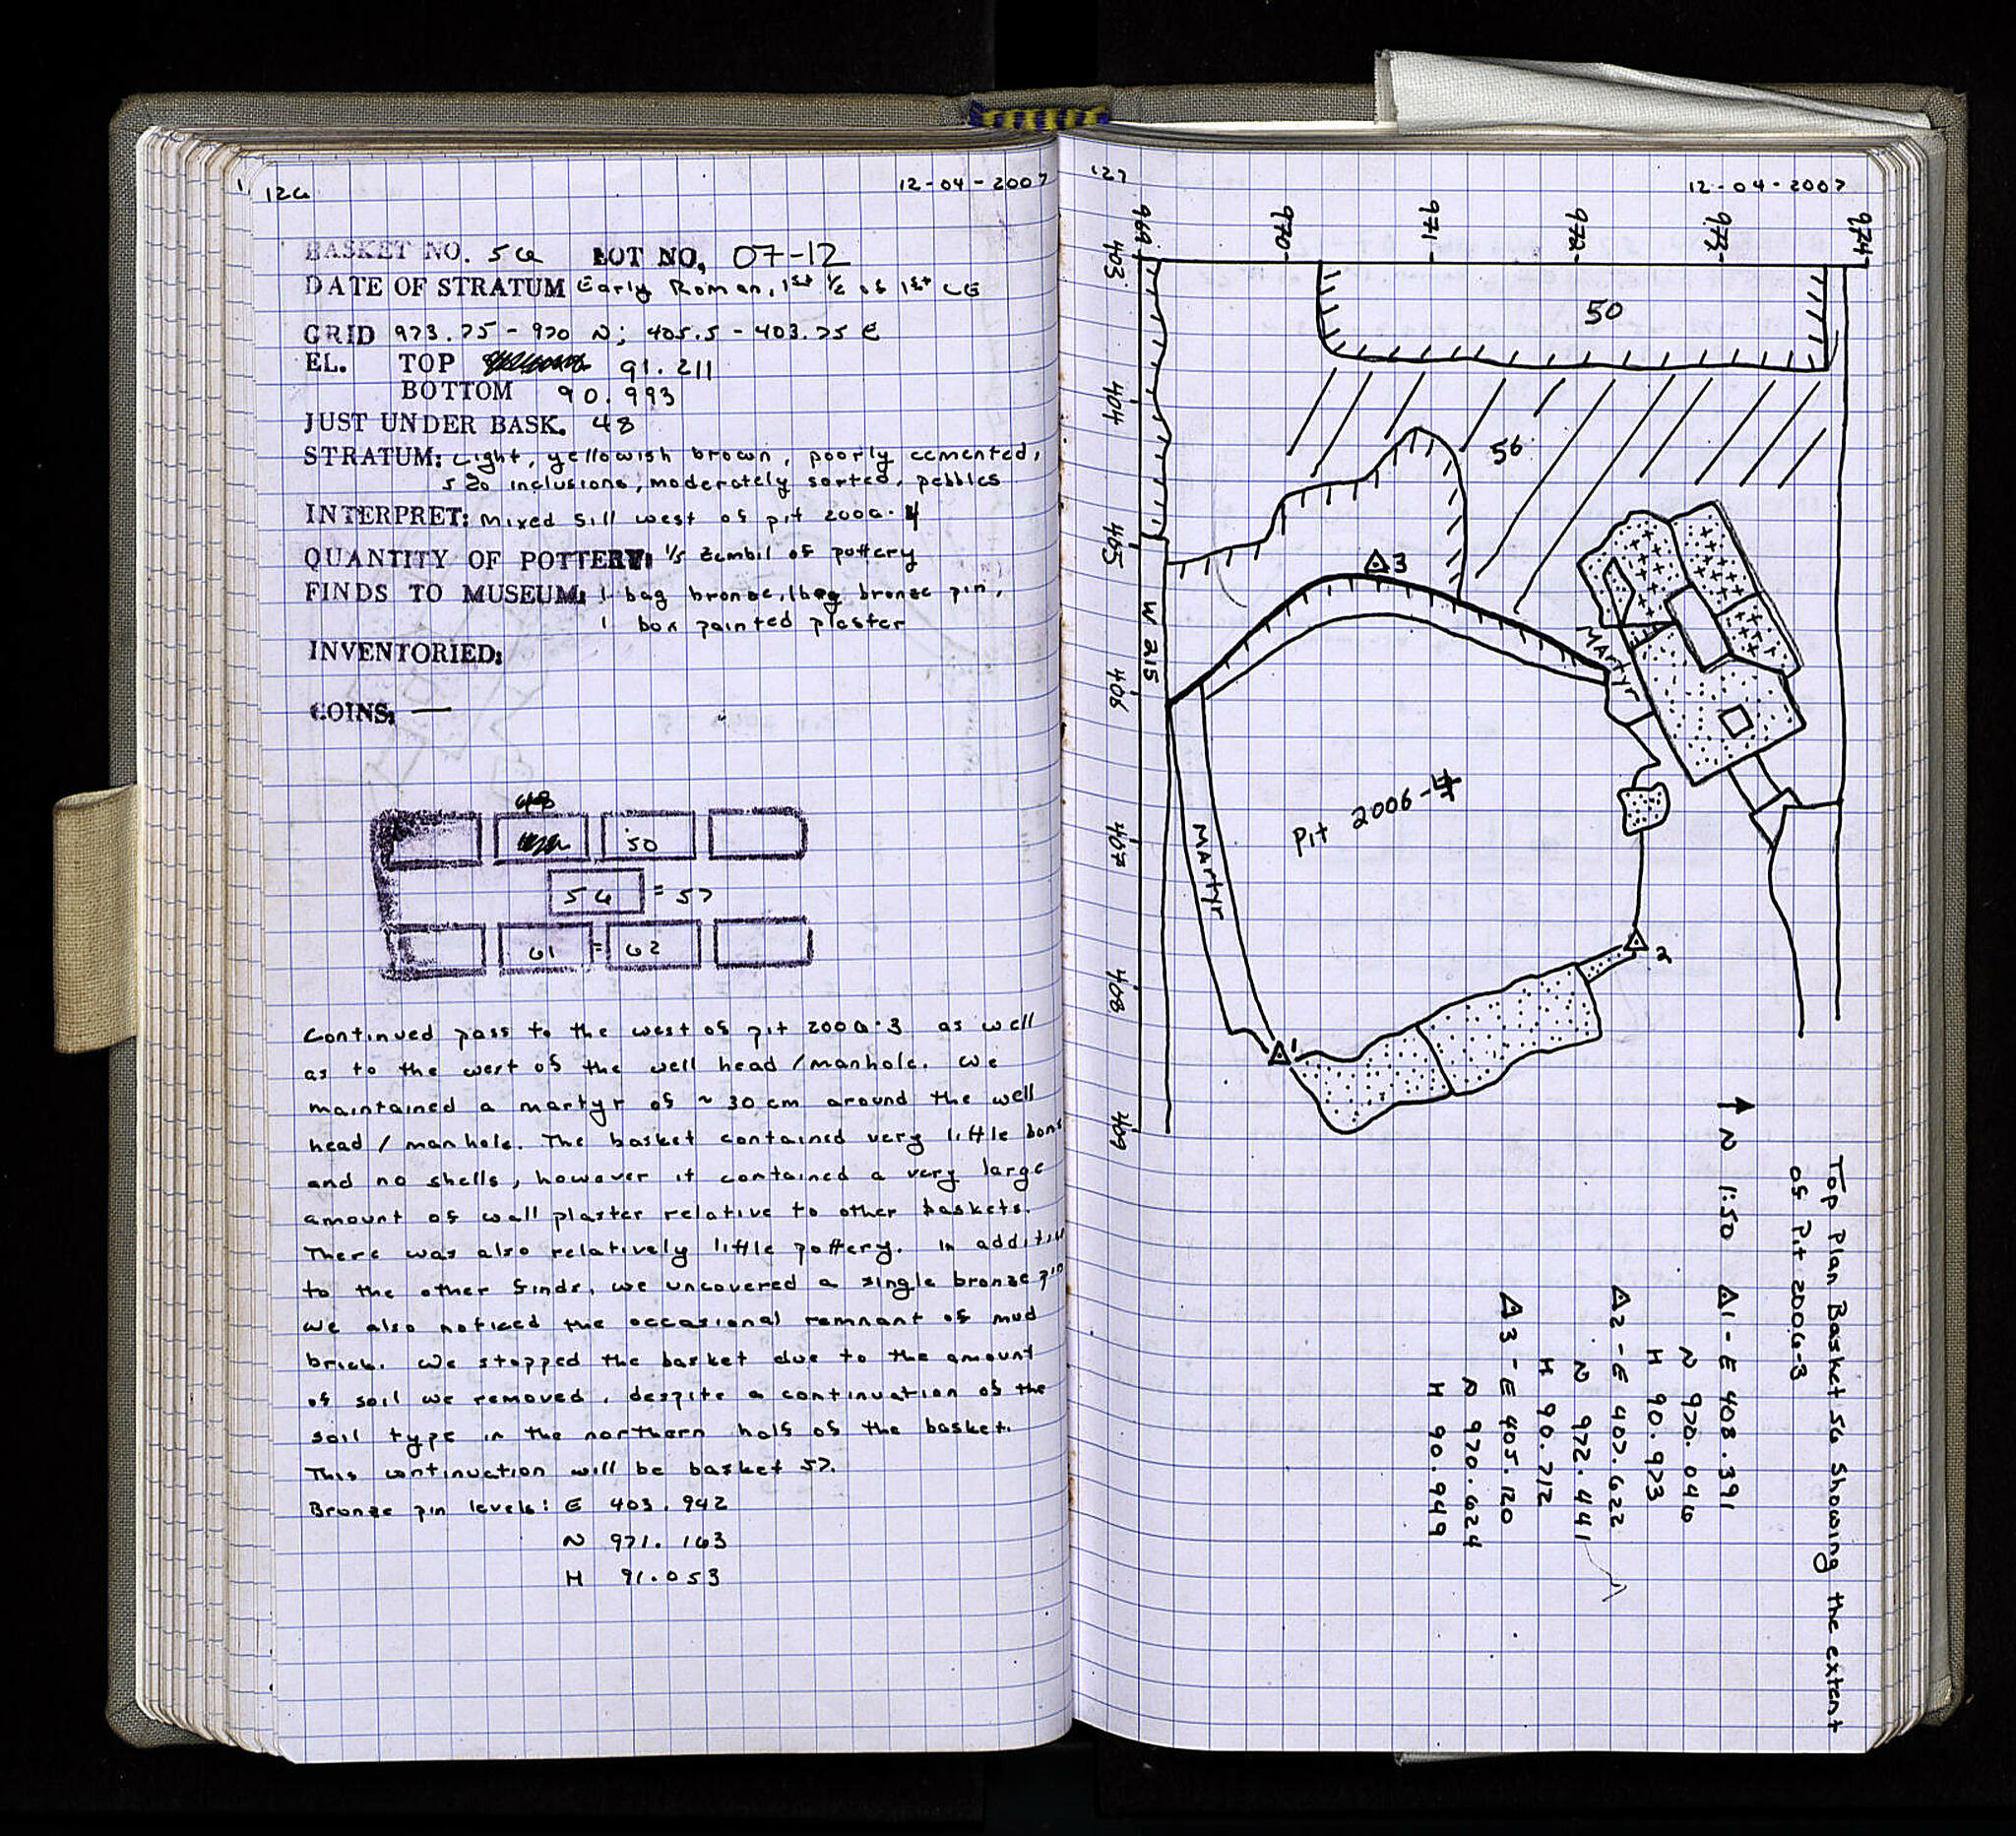 126
12-04-2007
BASKET NO. 56 LOT NO. 07-12
DATE OF STRATUM Early Roman, 1st ½ of 1st CE
GRID 973.75 - 970 N; 405.5 - 403.75 E
EL. TOP 91.211
BOTTOM 90.993
JUST UNDER BASK. 48
STRATUM: Light, yellowish brown, poorly cemented,
5% inclusions, moderately sorted, pebbles
INTERPRET: mixed fill west of pit 2006-4
QUANTITY OF POTTERY: 1/5 zembil of pottery
FINDS TO MUSEUM: 1 bag bronze, 1 bag bronze pin,
1 box painted plaster
INVENTORIED:
COINS: —
48
50
56 = 57
61 = 62
Continued pass to the west of pit 2006-3 as well
as to the west of the well head / manhole. We
maintained a martyr of ~ 30 cm around the well
head / manhole. The basket contained very little bone
and no shells, however it contained a very large
amount of wall plaster relative to other baskets.
There was also relatively little pottery. In addition
to the other finds, we uncovered a single bronze pin
We also noticed the occasional remnant of mud
brick. We stopped the basket due to the amount
of soil we removed, despite a continuation of the
soil type in the northern half of the basket.
This continuation will be basket 57.
Bronze pin levels: E 403.942
N 971.163
H 91.053
127
12-04-2007
969 970 971 972 973 974
403
404
405
406
407
408
409
50
56
3
W 215
Martyr
Pit 2006-4
Martyr
2
1
↑ N 1:50
Top Plan Basket 56 showing the extent
of Pit 2006-3
△1 - E 408.391
N 970.046
H 90.973
△2 - E 407.622
N 972.441
H 90.712
△3 - E 405.120
N 970.624
H 90.949